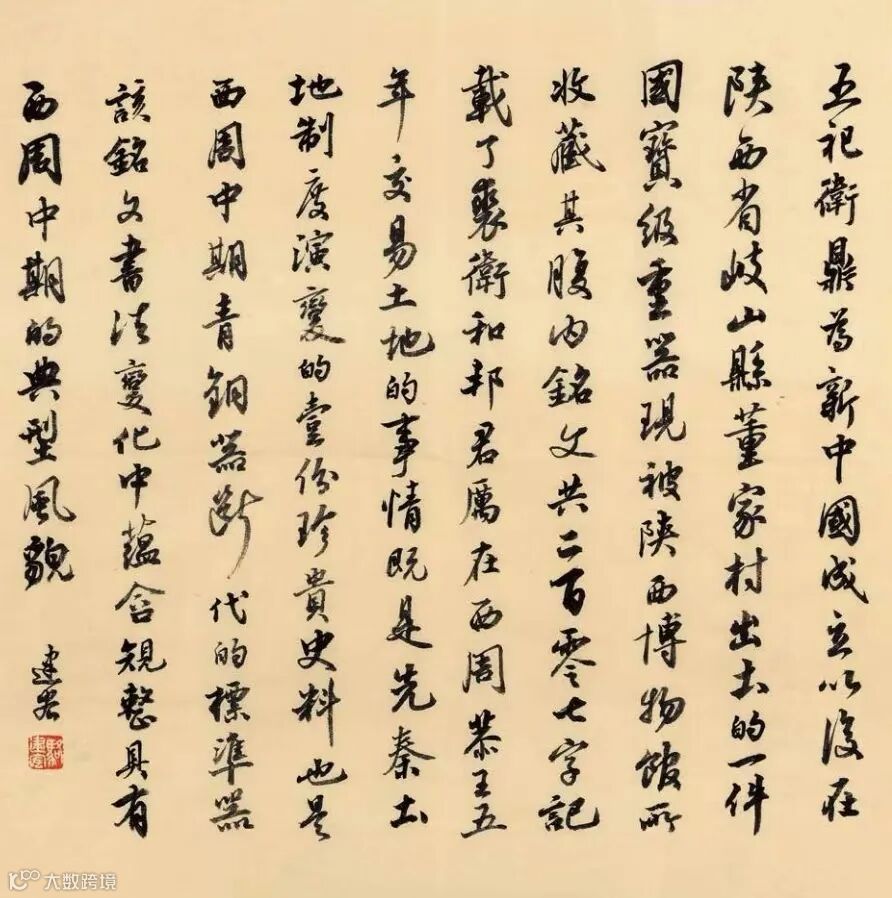 五祀衛鼎為新中國成立以後在
陝西省岐山縣董家村出土的一件
國寶級重器現被陝西博物館所
收藏其腹内銘文共二百零七字記
載了裘衛和邦君厲在西周恭王五
年交易土地的事情既是先秦土
地制度演變的壹份珍貴史料也是
西周中期青銅器斷代的標準器
該銘文書法變化中蘊含規整具有
西周中期的典型風貌
建
大数跨境